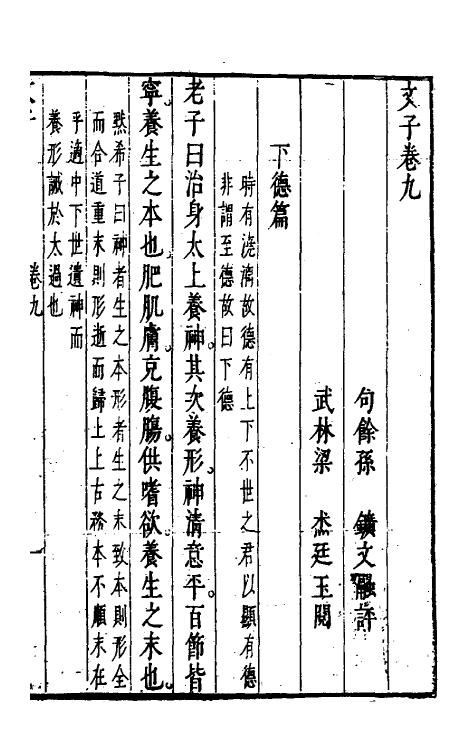 文子卷九
句餘孫　鑛文融評
武林梁　杰廷玉閱
下德篇
時有澆漓故德有上下不世之君以顯有德
非謂至德故曰下德
老子曰治身太上養神其次養形神清意平百節皆
寧養生之本也肥肌膚克腹腸供嗜欲養生之末也
默希子曰神者生之本形者生之末致本則形全
而合道重末則形逝而歸土上古務本不順末在
乎適中下世遺神而
養形誡於太過也
卷九
一